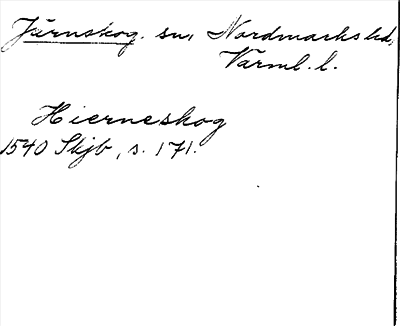 Järnskog. sn, Nordmarks hd,
Värml. l.
Hierneskog
1540 Skjb, s. 171.